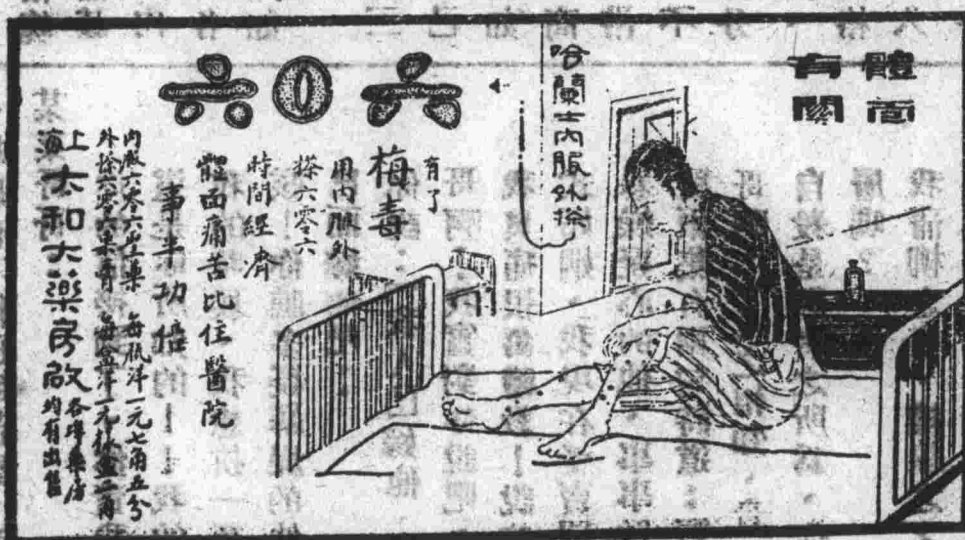 體面
有關
哈蘭士內服外搽
六〇六
有了
梅毒
用內服外
搽六零六
時間經濟
體面痛苦比住醫院
事半功倍
內服六零六生藥 每瓶洋一元七角五分
外搽六零六藥膏 每盒洋一元
上海太和大藥房啟
各埠藥房
均有出售